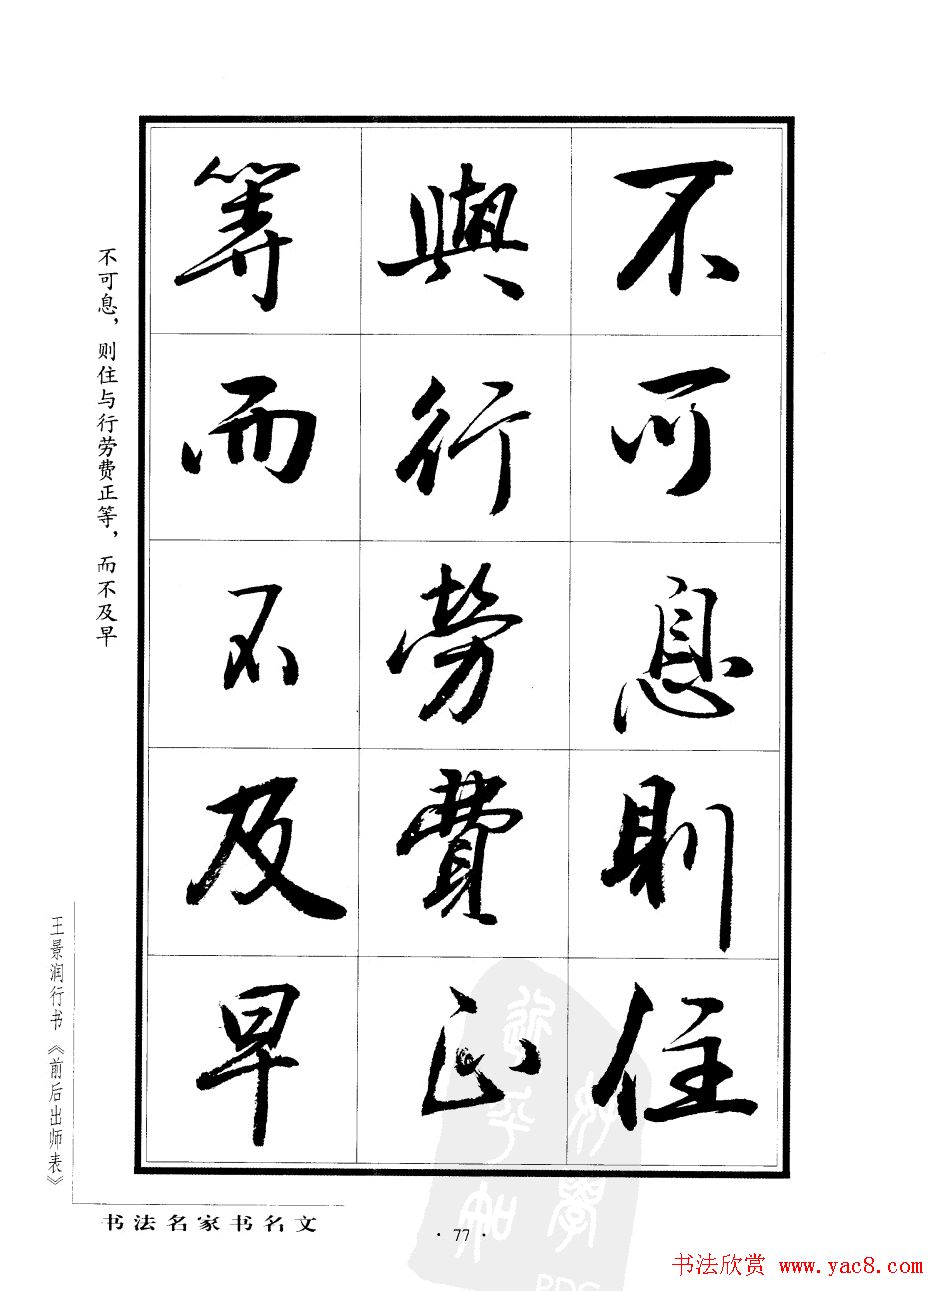 不可息則住
與行勞費正
等而不及早
不可息，则住与行劳费正等，而不及早
王景润行书《前后出师表》
书法名家书名文
·77·
书法欣赏 www.yac8.com